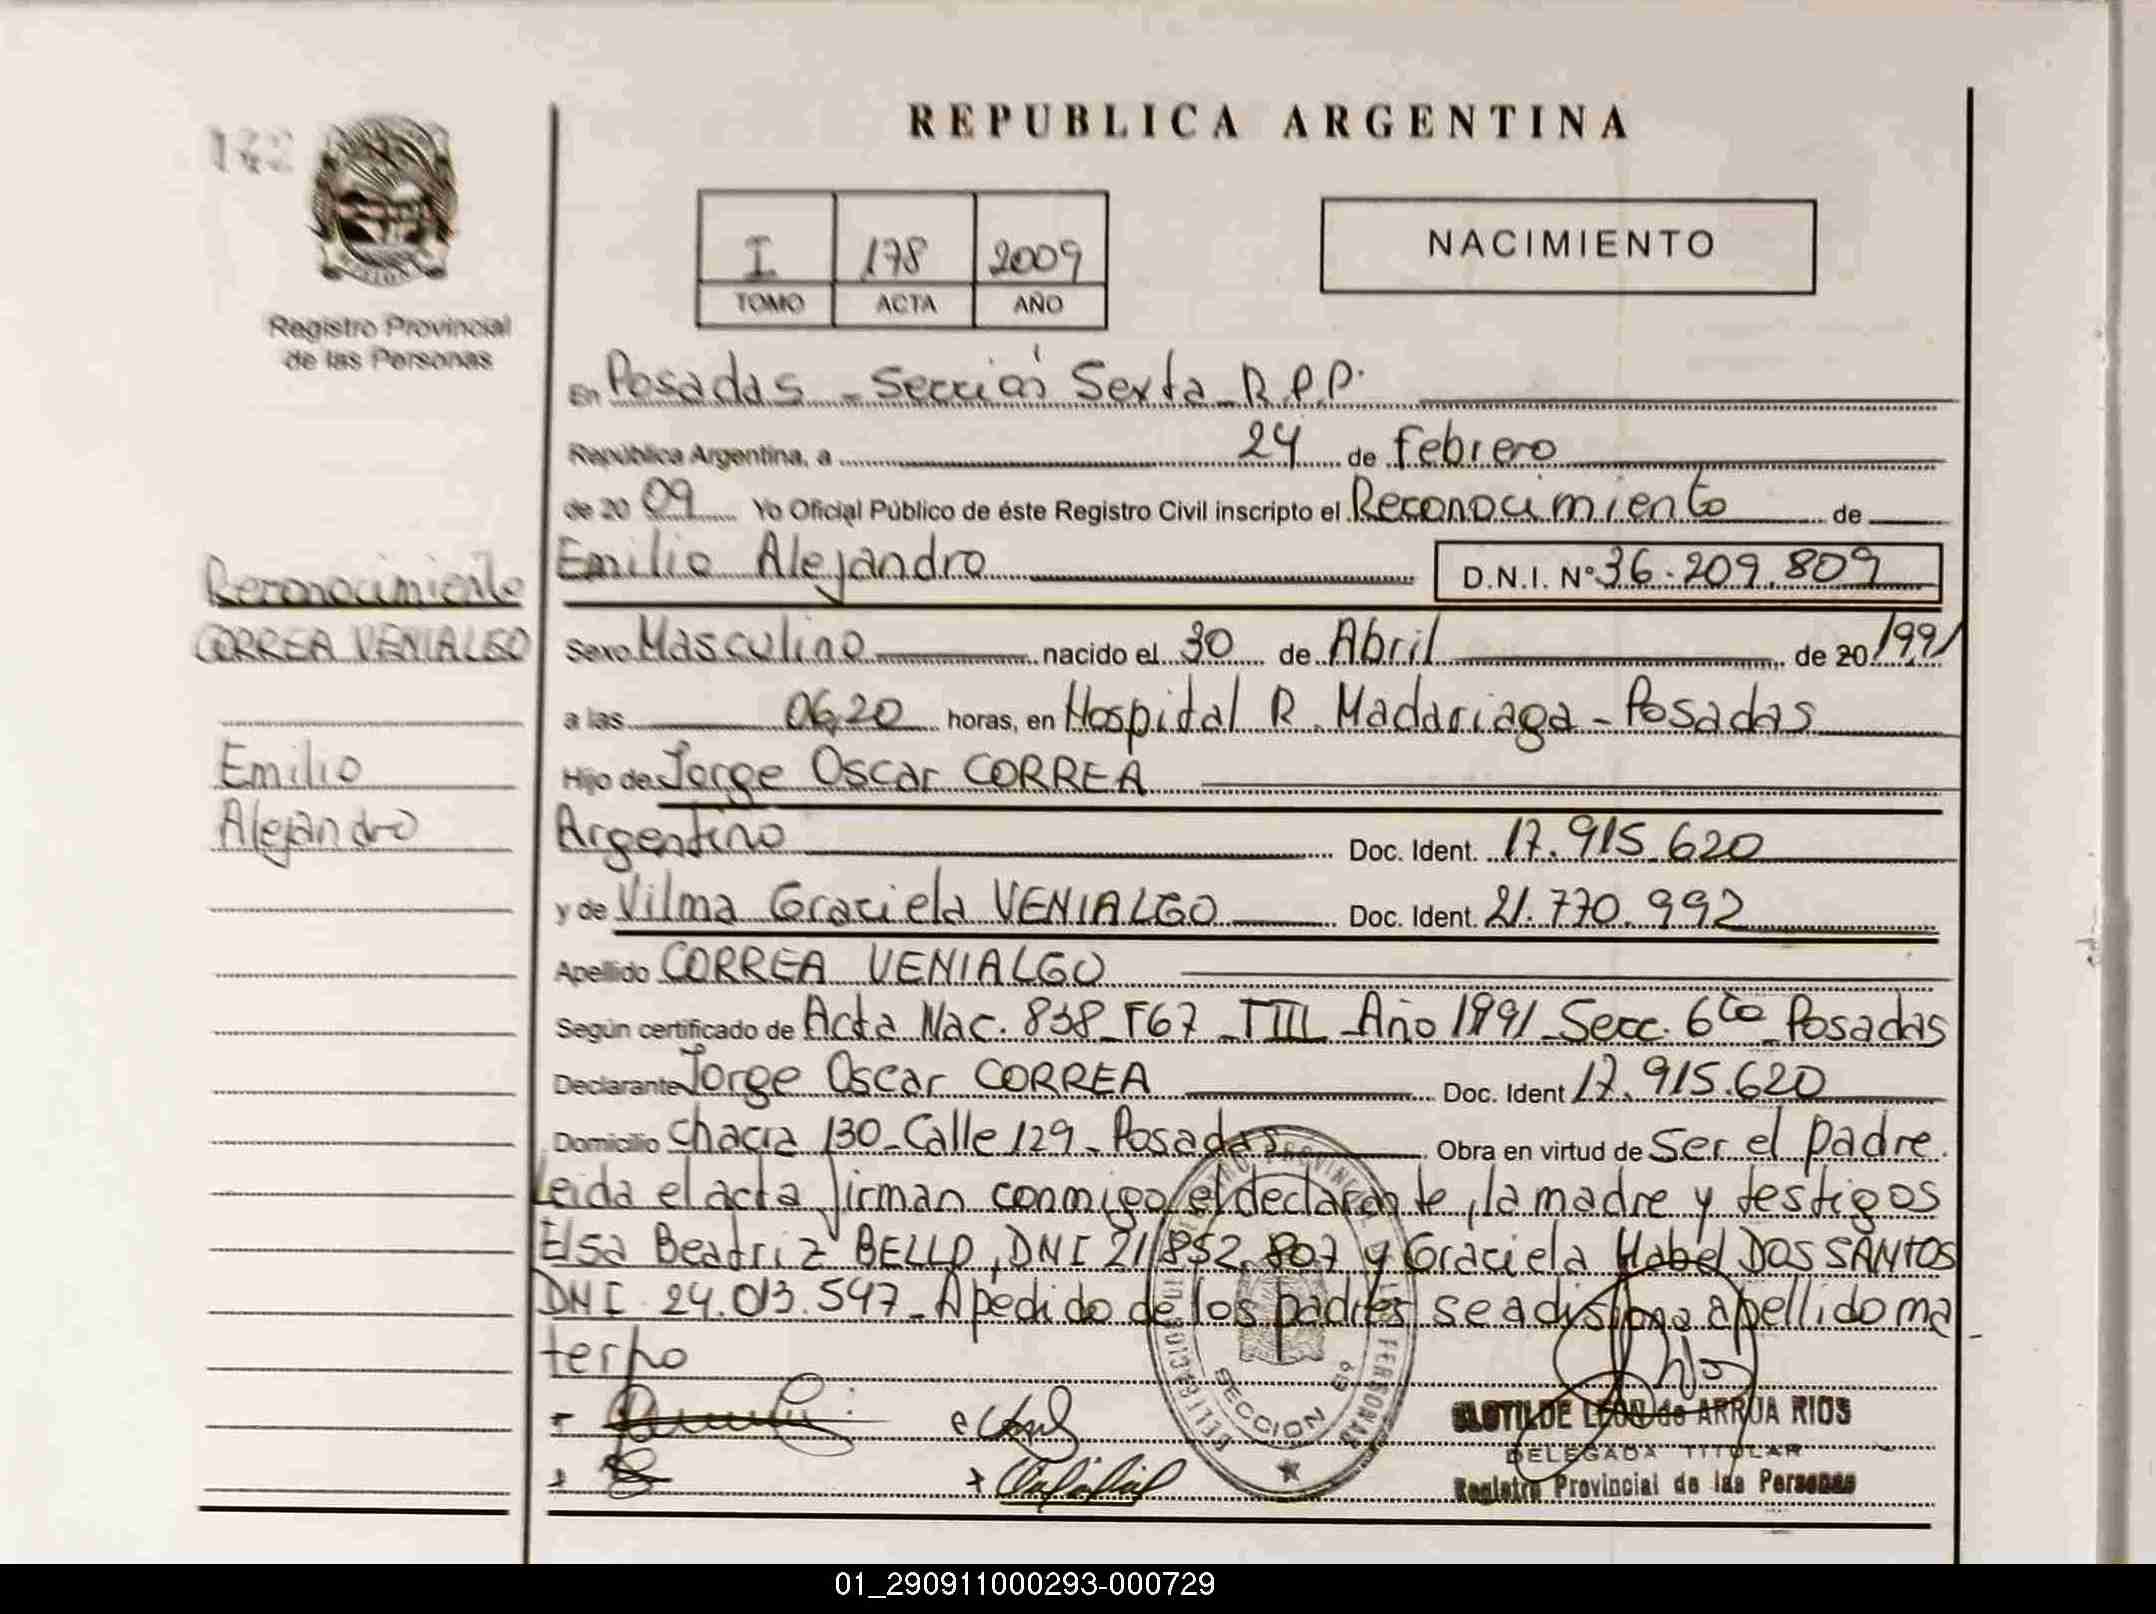 REPUBLICA ARGENTINA
142
Registro Provincial
de las Personas
I 178 2009
TOMO ACTA AÑO
NACIMIENTO
En Posadas - Sección Sexta R.P.P.
República Argentina, a 24 de febrero
de 20 09 Yo Oficial Público de éste Registro Civil inscripto el Reconocimiento de
Emilio Alejandro D.N.I. Nº 36.209.809
Reconocimiento
CORREA VENIALGO
Emilio
Alejandro
Sexo Masculino nacido el 30 de Abril de 20 1991
a las 06,20 horas, en Hospital R. Madariaga - Posadas
Hijo de Jorge Oscar CORREA
Argentino Doc. Ident. 17.915.620
y de Vilma Graciela VENIALGO Doc. Ident. 21.770.992
Apellido CORREA VENIALGO
Según certificado de Acta Nac. 838 F67 TIII Año 1991 Secc. 6ta Posadas
Declarante Jorge Oscar CORREA Doc. Ident 17.915.620
Domicilio Chacra 130 - Calle 129 - Posadas Obra en virtud de Ser el padre.
Leida el acta firman conmigo el declarante, la madre y testigos
Elsa Beatriz BELLO, DNI 21.852.807 y Graciela Mabel DOS SANTOS
DNI 24.013.547 - A pedido de los padres se adisiona apellido ma
terno
SECCION 6º
CLOTILDE LEON de ARRUA RIOS
DELEGADA TITULAR
Registro Provincial de las Personas
01_290911000293-000729